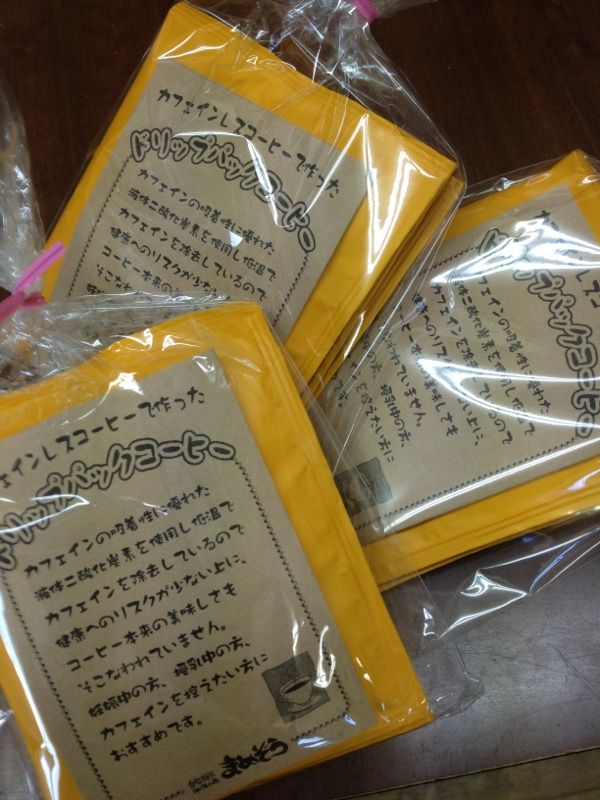 カフェインレスコーヒーで作った
ドリップパックコーヒー
カフェインの吸着性に優れた
液体二酸化炭素を使用し低温で
カフェインを除去しているので
健康へのリスクが少ない
コーヒー本来の
そこな
カフェ
レスコ
パックコーヒー
カフェインの吸着性に優れた
液体二酸化炭素を使用し低温で
カフェインを除去しているので
健康へのリスクが少ない上に、
コーヒー本来の美味しても
そこなわれていません。
授乳中の方、
を控えたい方に
ェインレスコーヒーで作った
リップパックコーヒー
カフェインの吸着性に優れた
液体二酸化炭素を使用し低温で
カフェインを除去しているので
健康へのリスクが少ない上に、
コーヒー本来の美味しても
そこなわれていません。
妊娠中の方、授乳中の方、
カフェインを控えたい方に
おすすめです。
まめぞう